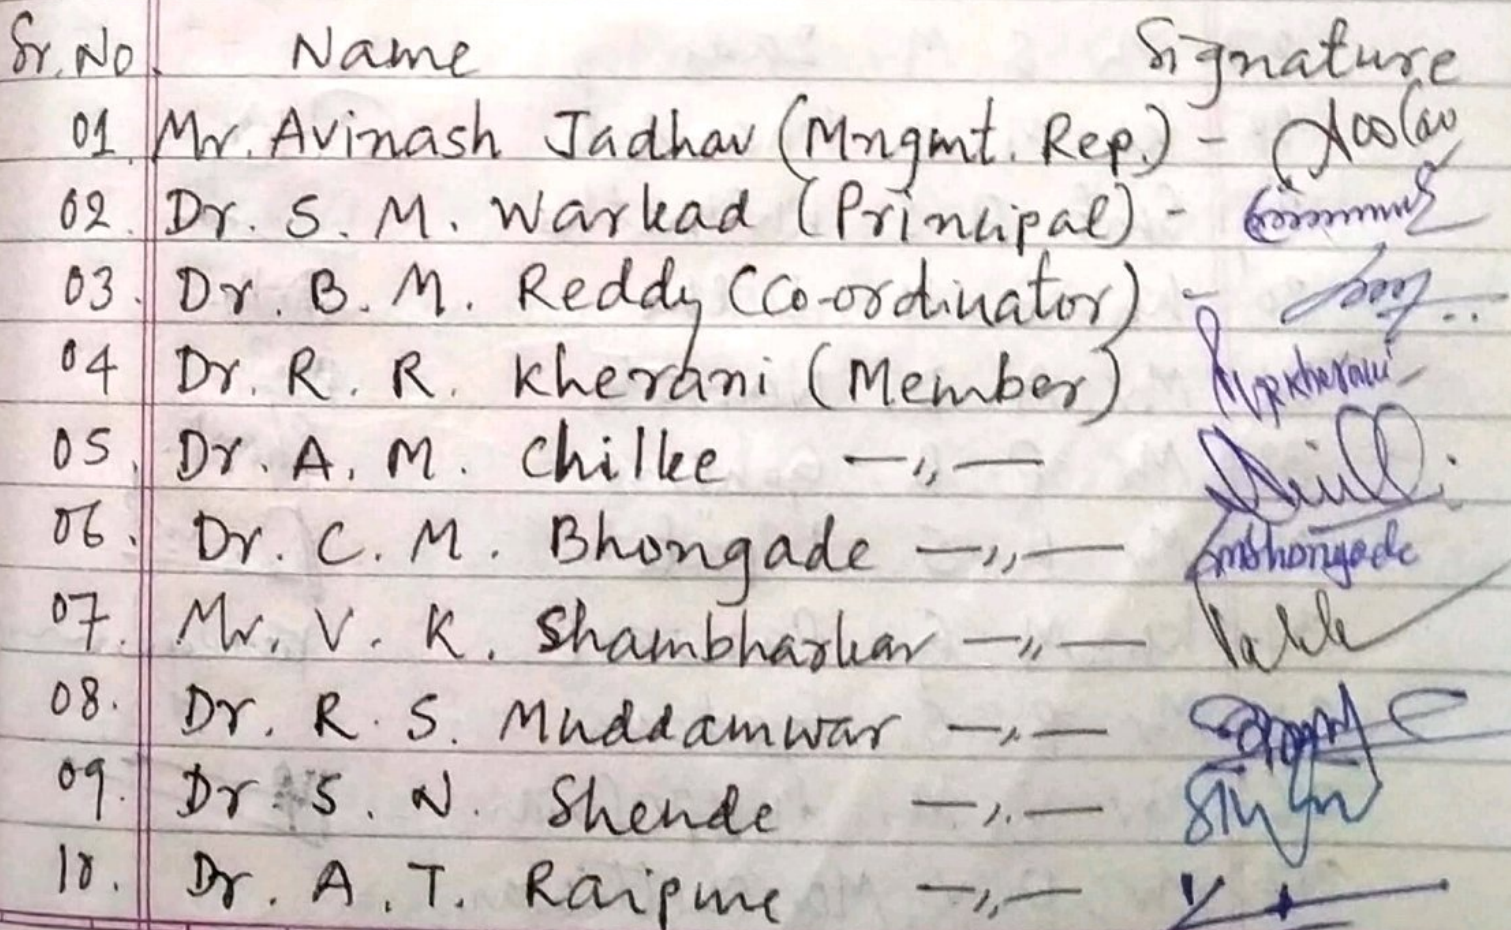 Sr. No. Name Signature
01. Mr. Avinash Jadhav (Mngmt. Rep.) -
02. Dr. S. M. Warkad (Principal) -
03. Dr. B. M. Reddy (Co-ordinator) -
04 Dr. R. R. Kherani (Member) RRKherani
05. Dr. A. M. Chilke —,,—
06. Dr. C. M. Bhongade —,,— CMBhongade
07. Mr. V. K. Shambharkar —,,—
08. Dr. R. S. Muddamwar —,,—
09. Dr. S. N. Shende —,,—
10. Dr. A. T. Raipure —,,—